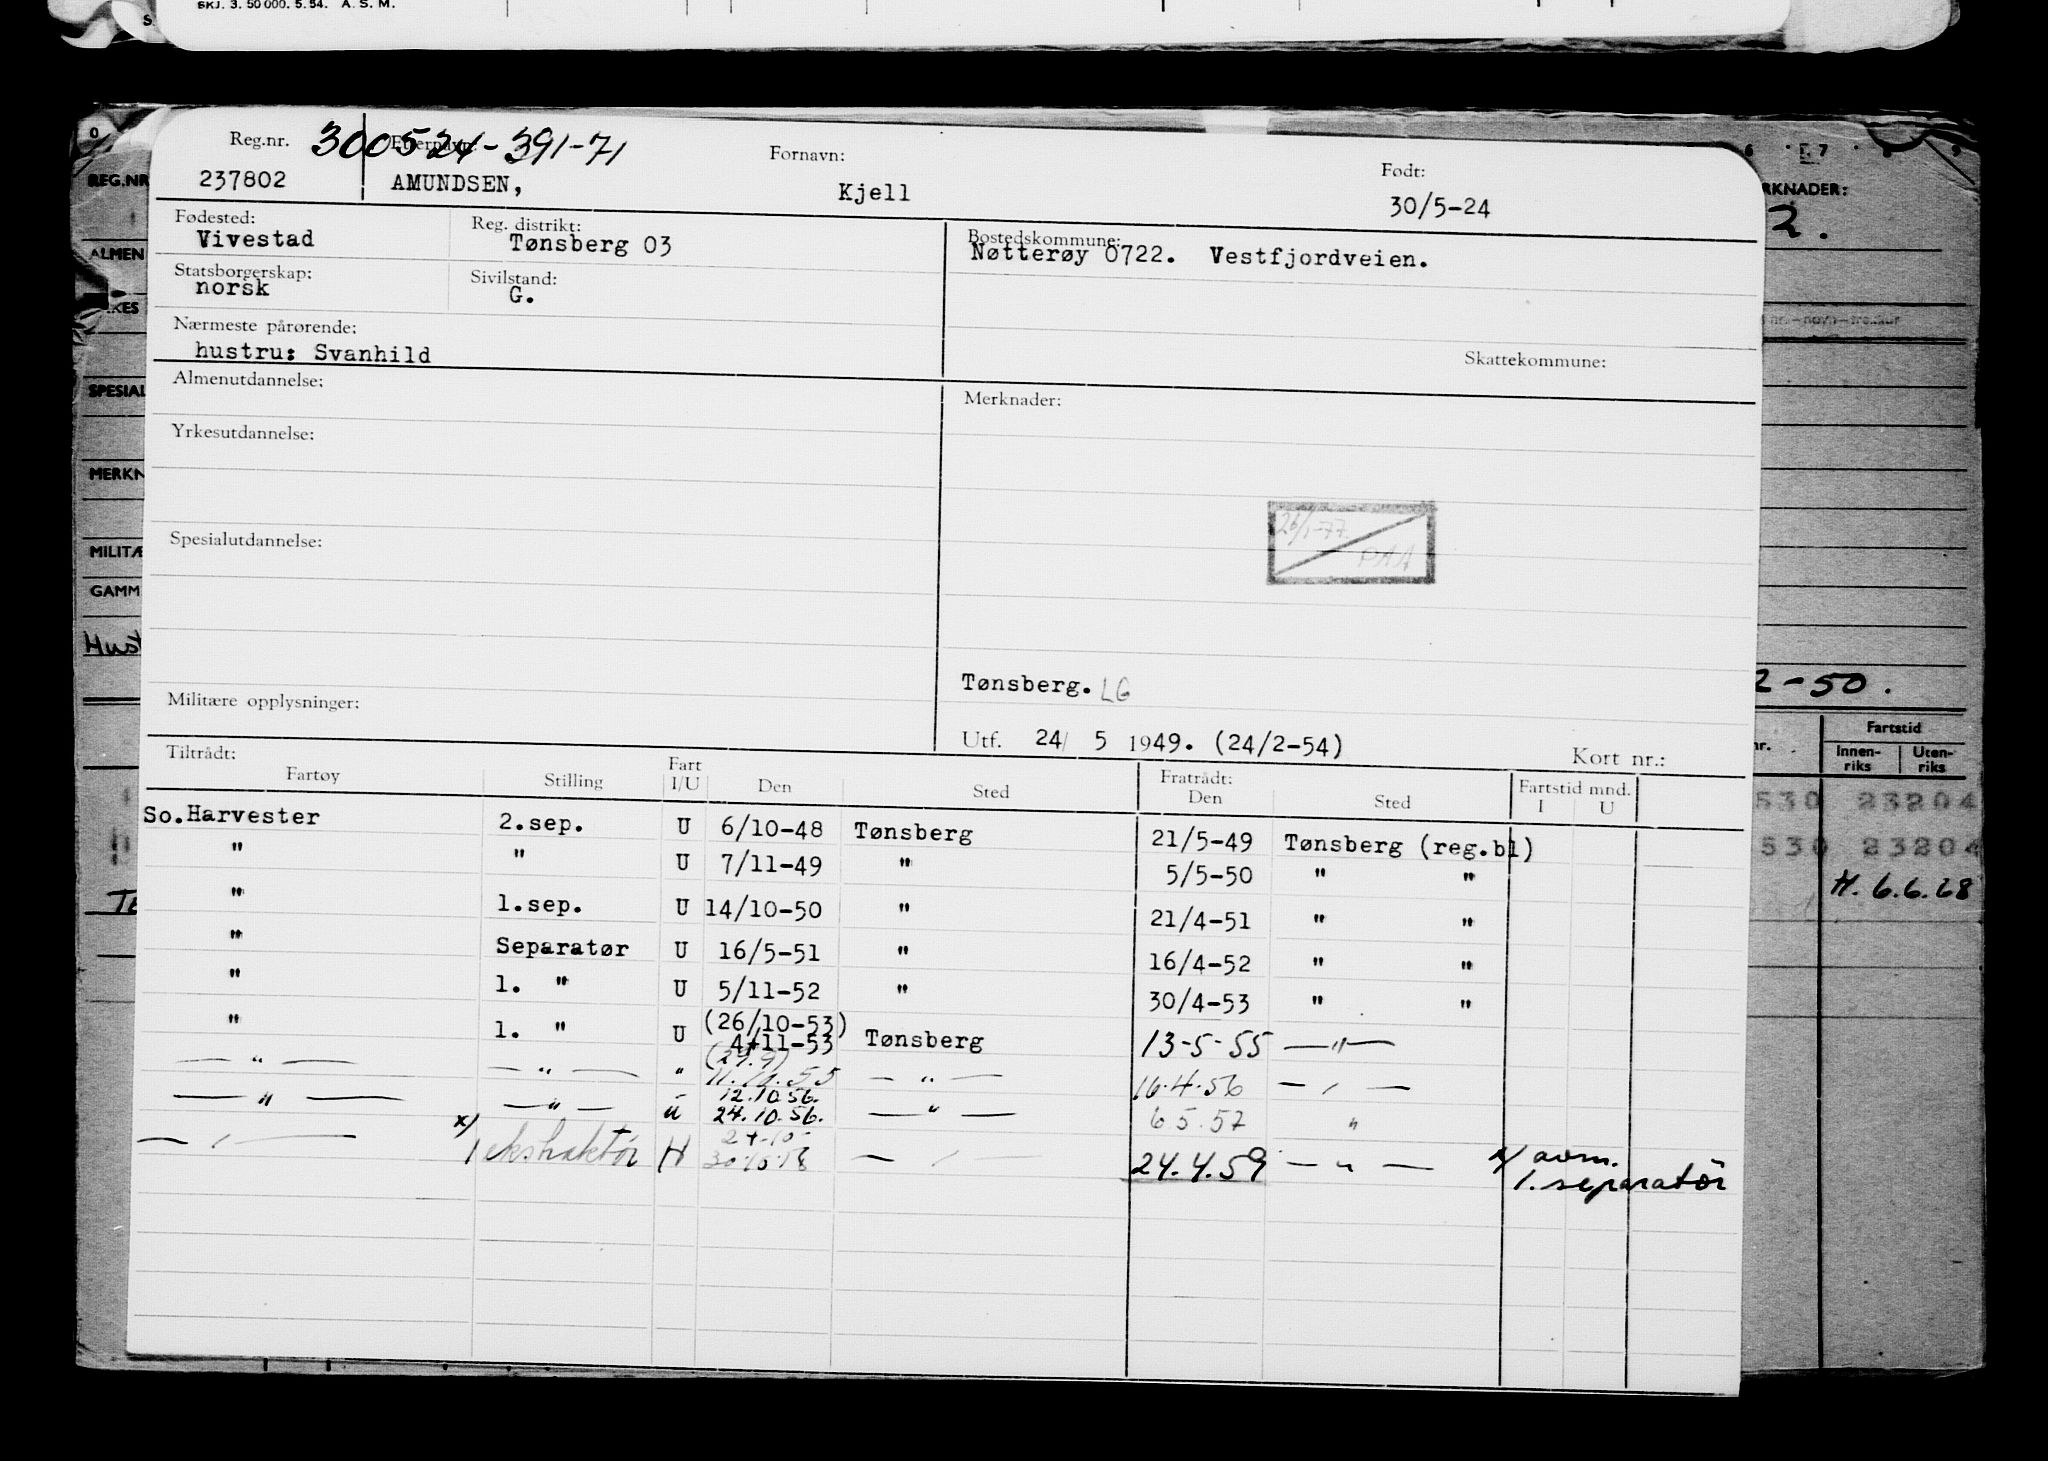 SKJ. 3. 50 000. 5. 54. A. S. M.
Reg.nr. 300524-391-71 Etternavn: Fornavn: Født:
237802 AMUNDSEN, Kjell 30/5-24
Fødested: Reg. distrikt: Bostedskommune:
Vivestad Tønsberg 03 Nøtterøy 0722. Vestfjordveien.
Statsborgerskap: Sivilstand:
norsk G.
Nærmeste pårørende:
hustru: Svanhild Skattekommune:
Almenutdannelse: Merknader:
Yrkesutdannelse:
26/1-77
PAA
Spesialutdannelse:
Tønsberg. LG
Militære opplysninger:
Utf. 24/ 5 1949. (24/2-54) Kort nr.:
Tiltrådt: Fart Fratrådt: Fartstid mnd.
Fartøy Stilling I/U Den Sted Den Sted I U
So.Harvester 2.sep. U 6/10-48 Tønsberg 21/5-49 Tønsberg (reg.bl)
" " U 7/11-49 " 5/5-50 " "
" 1.sep. U 14/10-50 " 21/4-51 " "
" Separatør U 16/5-51 " 16/4-52 " "
" 1. " U 5/11-52 " 30/4-53 " "
" 1. " U (26/10-53) 4/11-53 Tønsberg 13-5-55 — " —
— " — — " — " (29.9) 11.10.55 — " — 16.4.56 — " —
— " — — " — u 12.10.56. 24.10.56. — " — 6.5.57 "
— " — x) 1 ekstraktør H 30.10.58 — " — 24.4.59 — " — x) avm.
1. separatör
REG.NR
ALMEN
SPESIAL
MERKN
MILITÆ
GAMM
Hust
RKNADER:
2.
2-50.
Fartstid
nr. Innen-riks Uten-riks
530 23204
530 23204
H. 6.6.68